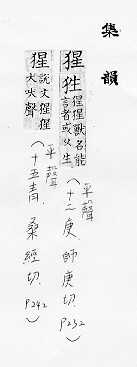 集韻
猩狌 猩猩獸名能
言者或从生
平聲
(十二庚 師庚切. P232)
猩 說文猩猩
犬吠聲
平聲
(十五青. 桑經切. P242)